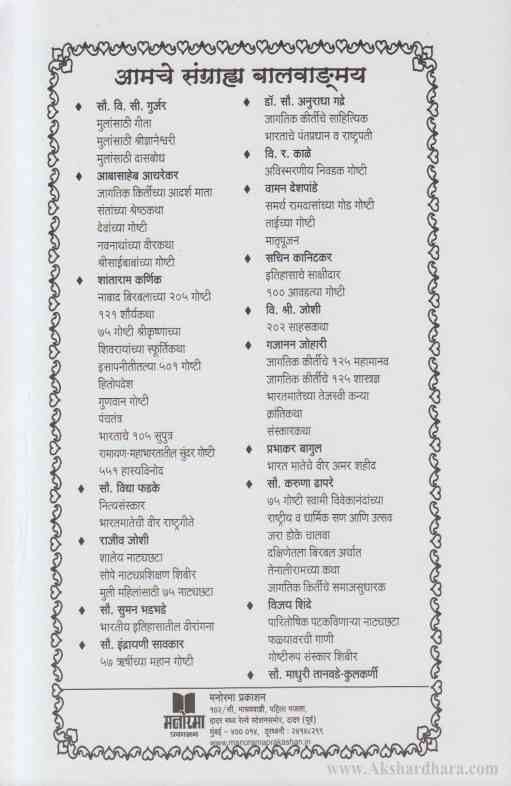 आमचे संग्राह्य बालवाङ्मय
♦ सौ. वि. सी. गुर्जर
मुलांसाठी गीता
मुलांसाठी श्रीज्ञानेश्वरी
मुलांसाठी दासबोध
♦ आबासाहेब आचरेकर
जागतिक किर्तीच्या आदर्श माता
संतांच्या श्रेष्ठकथा
देवांच्या गोष्टी
नवनाथांच्या वीरकथा
श्रीसाईबाबांच्या गोष्टी
♦ शांताराम कर्णिक
नाबाद बिरबलाच्या २०५ गोष्टी
१२१ शौर्यकथा
७५ गोष्टी श्रीकृष्णाच्या
शिवरायांच्या स्फूर्तिकथा
इसापनीतीतल्या ५०१ गोष्टी
हितोपदेश
गुणवान गोष्टी
पंचतंत्र
भारताचे १०५ सुपुत्र
रामायण-महाभारतातील सुंदर गोष्टी
५५१ हास्यविनोद
♦ सौ. विद्या फडके
नित्यसंस्कार
भारतमातेची वीर राष्ट्रगीते
♦ राजीव जोशी
शालेय नाट्यछटा
सोपे नाट्यप्रशिक्षण शिबीर
मुली महिलांसाठी ७५ नाट्यछटा
♦ सौ. सुमन भडभडे
भारतीय इतिहासातील वीरांगना
♦ सौ. इंद्रायणी सावकार
५७ ऋषींच्या महान गोष्टी
♦ डॉ. सौ. अनुराधा गद्रे
जागतिक कीर्तीचे साहित्यिक
भारताचे पंतप्रधान व राष्ट्रपती
♦ वि. र. काळे
अविस्मरणीय निवडक गोष्टी
♦ वामन देशपांडे
समर्थ रामदासांच्या गोड गोष्टी
ताईच्या गोष्टी
मातृपूजन
♦ सचिन कानिटकर
इतिहासाचे साक्षीदार
१०० आवडत्या गोष्टी
♦ वि. श्री. जोशी
२०२ साहसकथा
♦ गजानन जोहारी
जागतिक कीर्तीचे १२५ महामानव
जागतिक कीर्तीचे १२५ शास्त्रज्ञ
भारतमातेच्या तेजस्वी कन्या
क्रांतिकथा
संस्कारकथा
♦ प्रभाकर बागुल
भारत मातेचे वीर अमर शहीद
♦ सौ. करुणा ढापरे
७५ गोष्टी स्वामी विवेकानंदांच्या
राष्ट्रीय व धार्मिक सण आणि उत्सव
जरा डोके चालवा
दक्षिणेतला बिरबल अर्थात
तेनालीरामच्या कथा
जागतिक किर्तीचे समाजसुधारक
♦ विजय शिंदे
पारितोषिक पटकविणाऱ्या नाट्यछटा
फळ्यावरची गाणी
गोष्टीरुप संस्कार शिबीर
♦ सौ. माधुरी तानवडे-कुलकर्णी
मनोरमा
प्रकाशन
मनोरमा प्रकाशन
१०२/सी, माधववाडी, पहिला मजला,
दादर मध्य रेल्वे स्टेशनसमोर, दादर (पूर्व)
मुंबई - ४०० ०१४, दूरध्वनी : २४१४८२९९
www.manoramaprakashan.in
www.Akshardhara.com